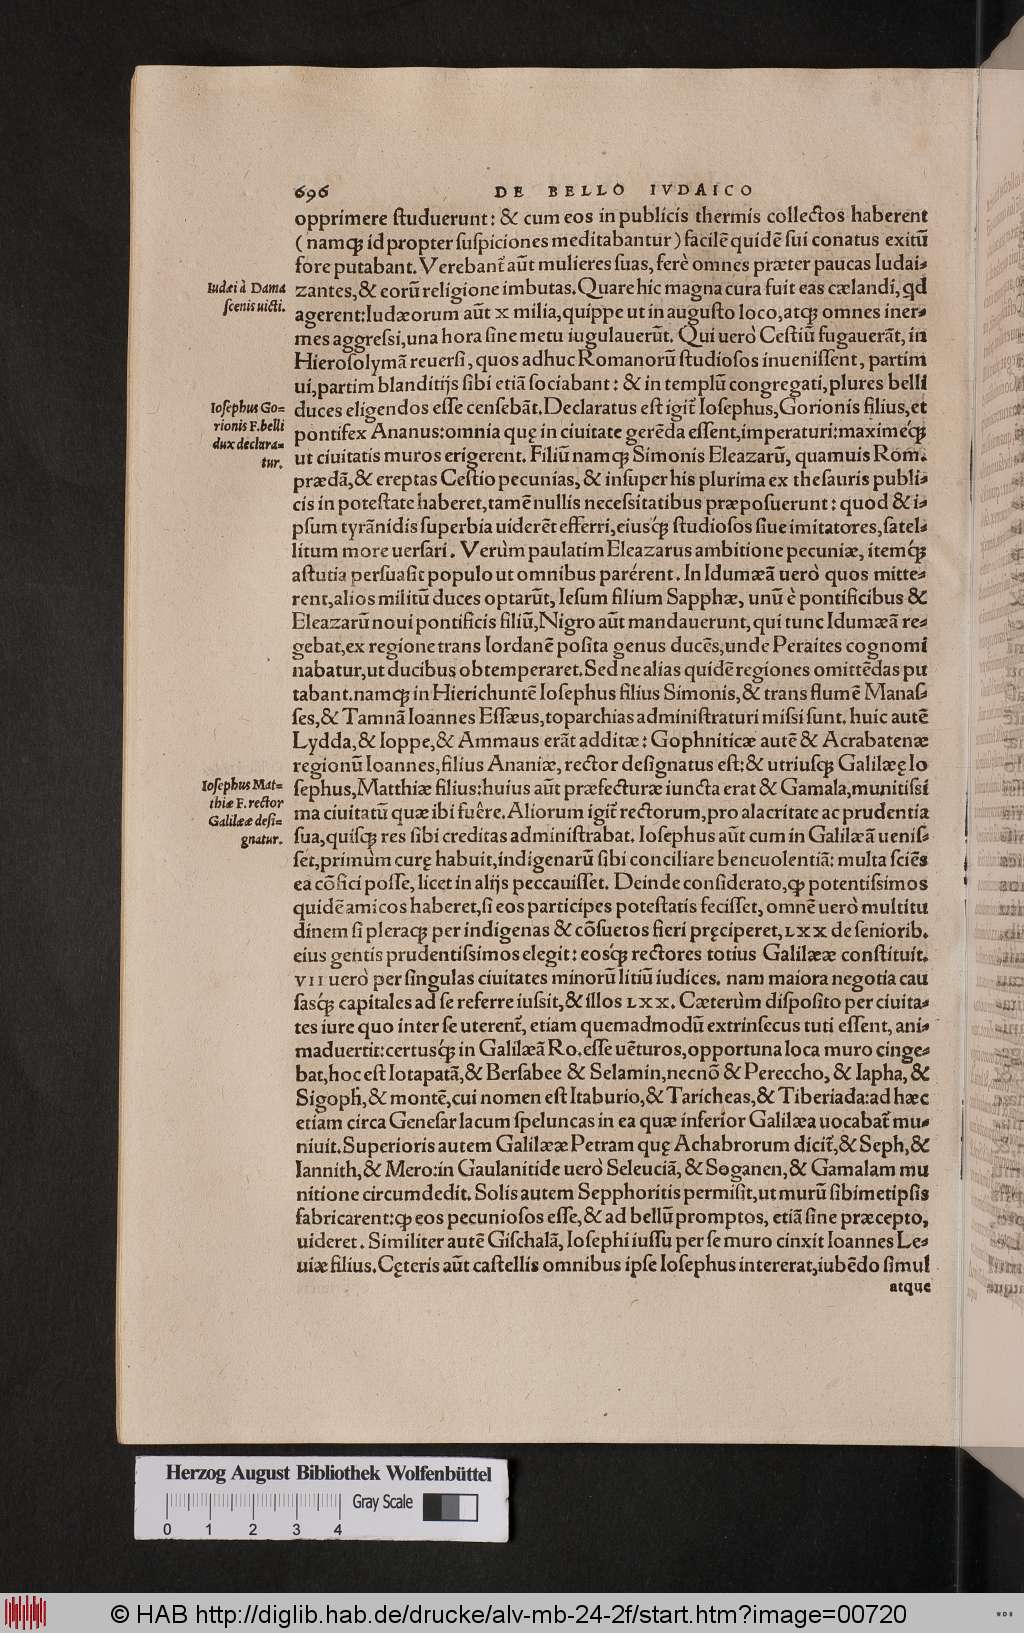 696 DE BELLO IVDAICO
opprimere ſtuduerunt: & cum eos in publicis thermis collectos haberent
(namqꝫ id propter ſuſpiciones meditabantur) facilē quidē ſui conatus exitū
fore putabant. Verebant᷑ aūt mulieres ſuas, ferè omnes præter paucas Iudai⸗
Iudæi à Dama
ſcenis uicti.
zantes, & eorū religione imbutas. Quare hic magna cura fuit eas cælandi, qd
agerent: Iudæorum aūt X milia, quippe ut in auguſto loco, atqꝫ omnes iner⸗
mes aggreſsi, una hora ſine metu iugulauerūt. Qui uerò Ceſtiū fugauerāt, in
Hieroſolymā reuerſi, quos adhuc Romanorū ſtudioſos inueniſſent, partim
ui, partim blanditijs ſibi etiā ſociabant: & in templū congregati, plures belli
Ioſephus Go⸗
rionis F. belli
dux declara⸗
tur.
duces eligendos eſſe cenſebāt. Declaratus eſt igit᷑ Ioſephus, Gorionis filius, et
pontifex Ananus: omnia quę in ciuitate gerēda eſſent, imperaturi: maximeq́ꝫ
ut ciuitatis muros erigerent. Filiū namqꝫ Simonis Eleazarū, quamuis Rom.
prædā, & ereptas Ceſtio pecunias, & inſuper his plurima ex theſauris publi⸗
cis in poteſtate haberet, tamē nullis neceſsitatibus præpoſuerunt: quod & i⸗
pſum tyrānidis ſuperbia uiderēt efferri, eiusq́ꝫ ſtudioſos ſiue imitatores, ſatel⸗
litum more uerſari. Verùm paulatim Eleazarus ambitione pecuniæ, itemq́ꝫ
aſtutia perſuaſit populo ut omnibus parérent. In Idumæā uerò quos mitte⸗
rent, alios militū duces optarūt, Ieſum filium Sapphæ, unū è pontificibus &
Eleazarū noui pontificis filiū, Nigro aūt mandauerunt, qui tunc Idumæā re⸗
gebat, ex regione trans Iordanē poſita genus ducēs, unde Peraites cognomi
nabatur, ut ducibus obtemperaret. Sed ne alias quidē regiones omittēdas pu
tabant. namqꝫ in Hierichuntē Ioſephus filius Simonis, & trans flumē Manaſ⸗
ſes, & Tamnā Ioannes Eſſæus, toparchias adminiſtraturi miſsi ſunt. huic autē
Lydda, & Ioppe, & Ammaus erāt additæ: Gophniticæ autē & Acrabatenæ
regionū Ioannes, filius Ananiæ, rector deſignatus eſt: & utriuſqꝫ Galilæę Io
Ioſephus Mat⸗
thiæ F. rector
Galilææ deſi⸗
gnatur.
ſephus, Matthiæ filius: huius aūt præfecturæ iuncta erat & Gamala, munitiſsi
ma ciuitatū quæ ibi fuêre. Aliorum igit᷑ rectorum, pro alacritate ac prudentia
ſua, quiſqꝫ res ſibi creditas adminiſtrabat. Ioſephus aūt cum in Galilæā ueniſ⸗
ſet, primùm curę habuit, indigenarū ſibi conciliare beneuolentiā: multa ſciēs
ea cōfici poſſe, licet in alijs peccauiſſet. Deinde conſiderato, ꝙ potentiſsimos
quidē amicos haberet, ſi eos participes poteſtatis feciſſet, omnē uerò multitu
dinem ſi pleraqꝫ per indigenas & cōſuetos fieri pręciperet, LXX de ſeniorib.
eius gentis prudentiſsimos elegit: eosq́ꝫ rectores totius Galilææ conſtituit.
VII uerò per ſingulas ciuitates minorū litiū iudices. nam maiora negotia cau
ſasq́ꝫ capitales ad ſe referre iuſsit, & illos LXX. Cæterùm diſpoſito per ciuita⸗
tes iure quo inter ſe uterent᷑, etiam quemadmodū extrinſecus tuti eſſent, ani⸗
maduertit: certusq́ꝫ in Galilæā Ro. eſſe uēturos, opportuna loca muro cinge⸗
bat, hoc eſt Iotapatā, & Berſabee & Selamin, necnō & Pereccho, & Iapha, &
Sigoph, & montē, cui nomen eſt Itaburio, & Taricheas, & Tiberiada: ad hæc
etiam circa Geneſar lacum ſpeluncas in ea quæ inferior Galilæa uocabat᷑ mu⸗
niuit. Superioris autem Galilææ Petram quę Achabrorum dicit᷑, & Seph, &
Iannith, & Mero: in Gaulanitide uerò Seleuciā, & Soganen, & Gamalam mu
nitione circumdedit. Solis autem Sepphoritis permiſit, ut murū ſibimetipſis
fabricarent: ꝙ eos pecunioſos eſſe, & ad bellū promptos, etiā ſine præcepto,
uideret. Similiter autē Giſchalā, Ioſephi iuſſu per ſe muro cinxit Ioannes Le⸗
uiæ filius. Cęteris aūt caſtellis omnibus ipſe Ioſephus intererat, iubēdo ſimul
atque
Herzog August Bibliothek Wolfenbüttel
Gray Scale
0 1 2 3 4
© HAB http://diglib.hab.de/drucke/alv-mb-24-2f/start.htm?image=00720